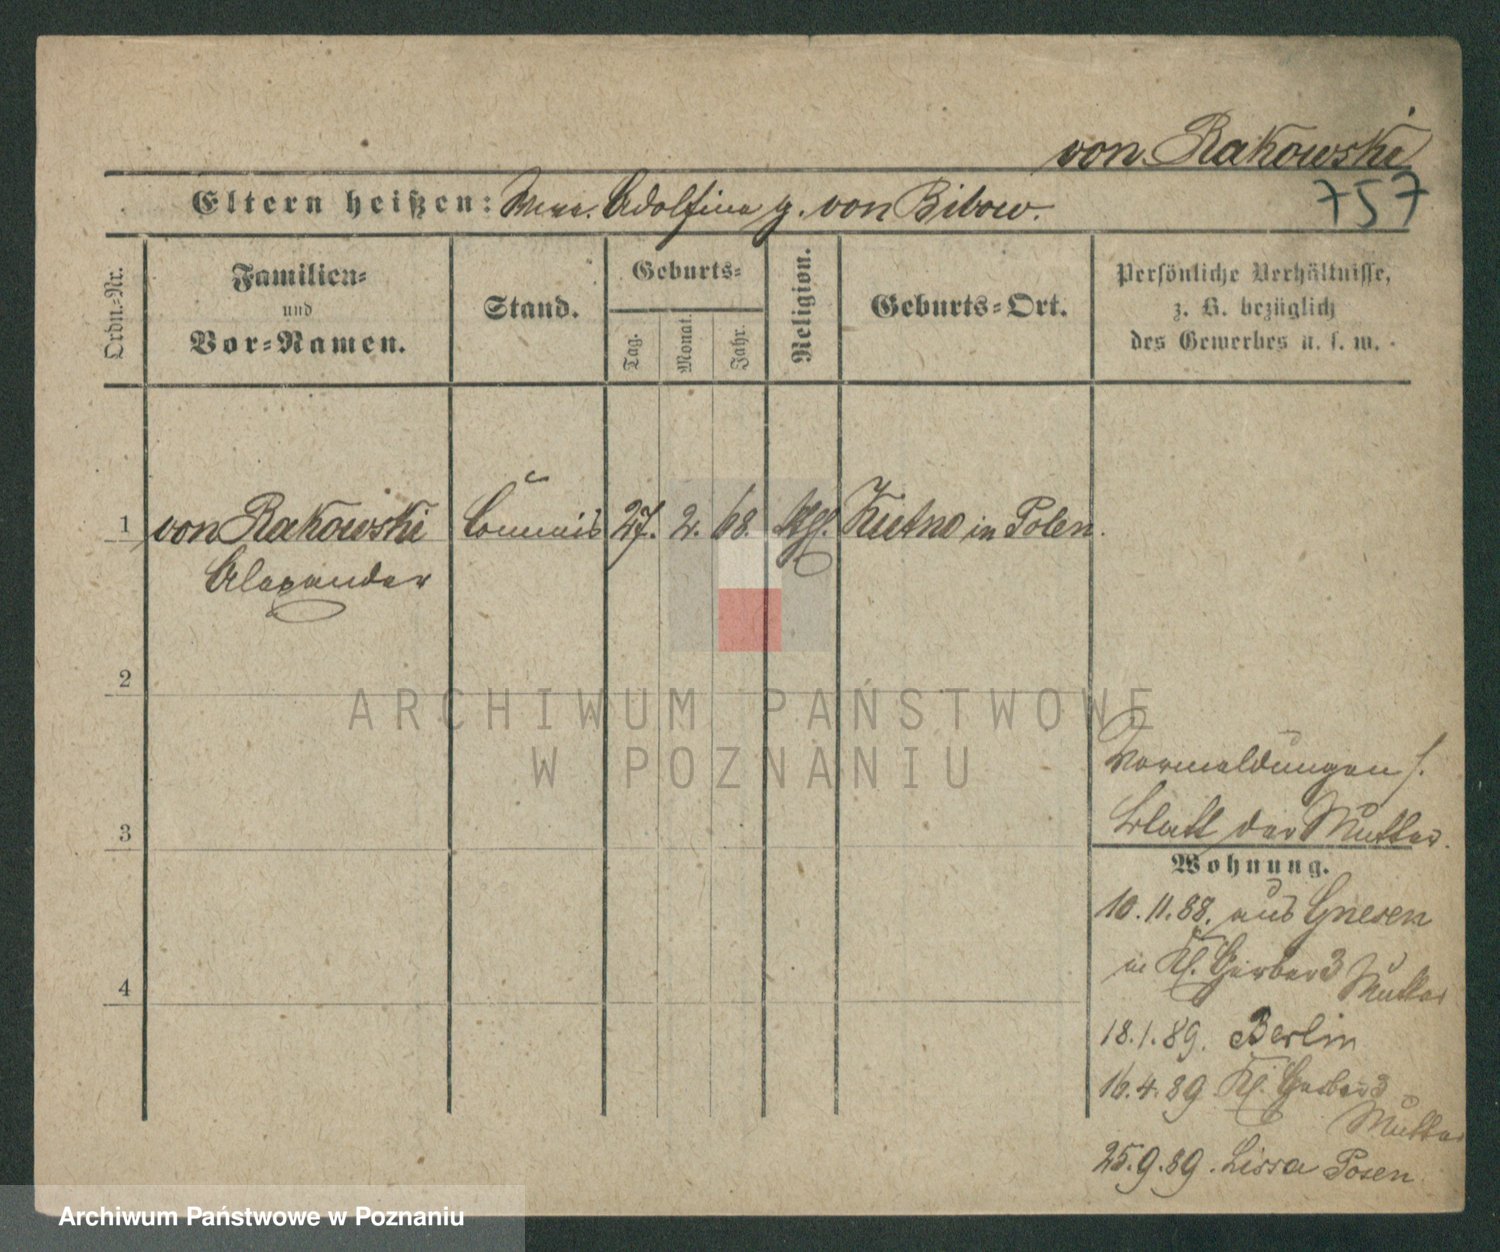 von Rakowski
757
Eltern heißen: Adolfine g. von Bibow.
Ordn.-Nr.
Familien-
und
Vor-Namen.
Stand.
Geburts-
Tag.
Monat.
Jahr.
Religion.
Geburts-Ort.
Persönliche Verhältnisse,
z. B. bezüglich
des Gewerbes u. s. w.
1 von Rakowski Commis 27. 2. 68. Kutno in Polen.
Alexander
2
ARCHIWUM PAŃSTWOWE
W POZNANIU
Vormeldungen s.
3 Blatt der Mutter.
Wohnung.
10.11.88. aus Gnesen
in Kl. Gerber 3 Mutter
4
18.1.89. Berlin
16.4.89 Kl. Gerber 3
Mutter
25.9.89. Lissa Posen
Archiwum Państwowe w Poznaniu